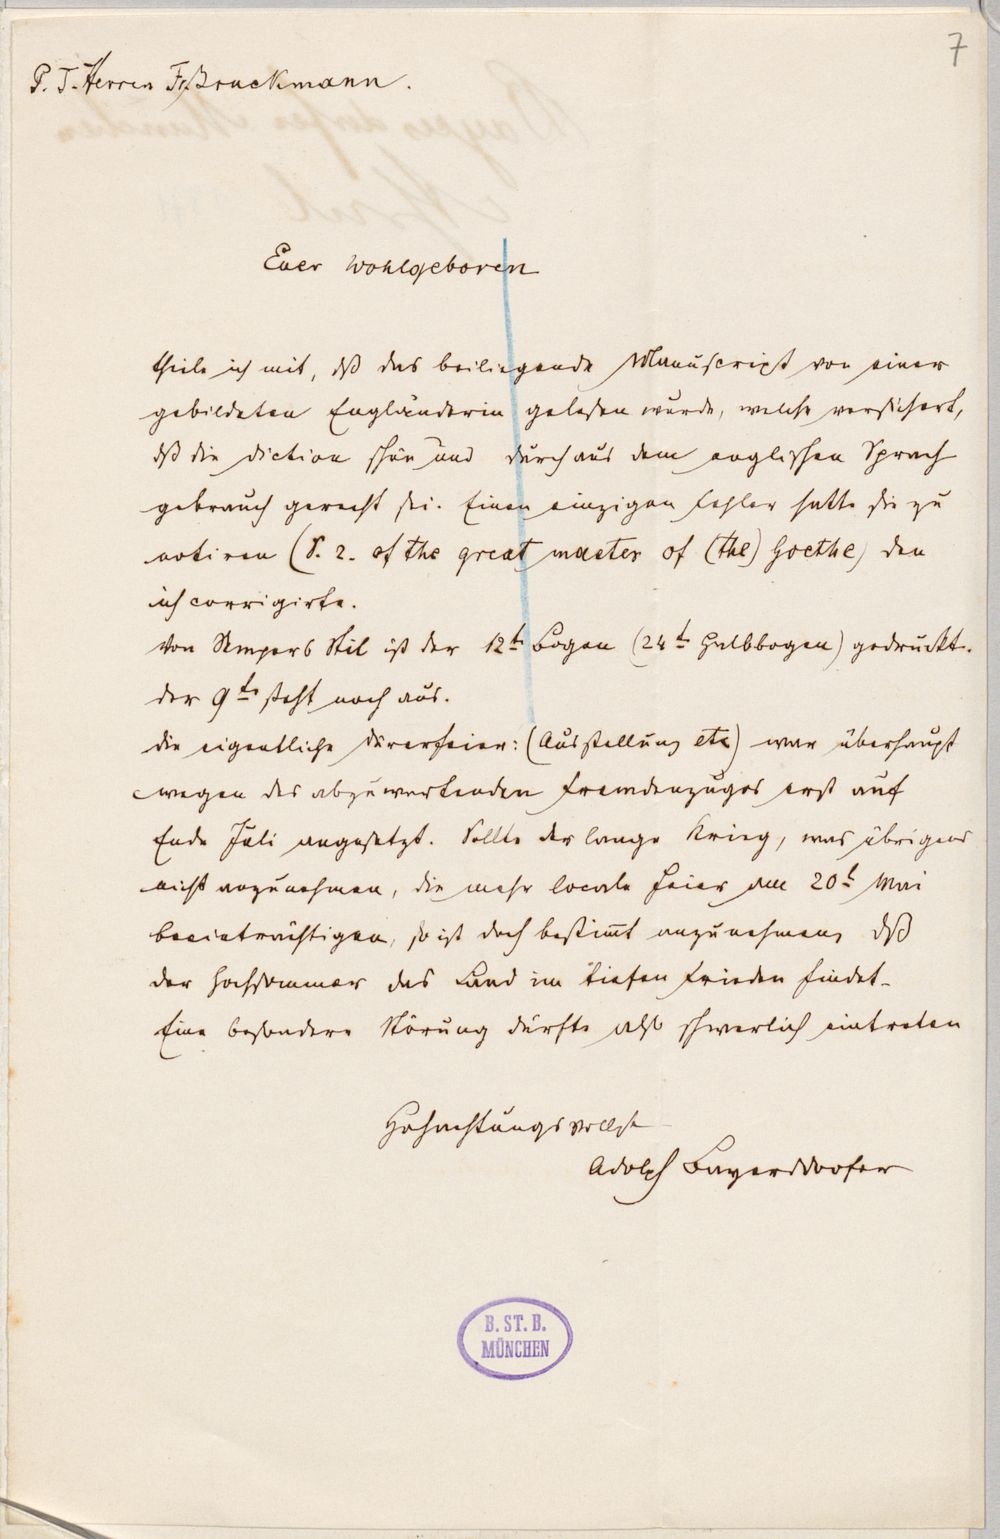 7
P. T. Herren Fr Bruckmann.
Euer Wohlgeboren
theile ich mit, dß das beiliegende Manuscript von einer
gebildeten Engländerin gelesen wurde, welche versichert,
dß die Diction schön und durchaus dem englischen Sprach
gebrauch gerecht sei. Einen einzigen Fehler hatte sie zu
notiren (S. 2. of the great master of (the) Goethe) den
ich corrigirte.
Von Sempers Stil ist der 12te Bogen (24te Halbbogen) gedruckt.
der 9te steht noch aus.
die eigentliche Dürerfeier: (Ausstellung etc) war überhaupt
wegen des abzuwartenden Fremdenzuges erst auf
Ende Juli angesetzt. Sollte der lange Krieg, was übrigens
nicht anzunehmen, die mehr locale Feier am 20t Mai
beeinträchtigen, so ist doch bestimt anzunehmen, dß
der Hochsommer das Land im tiefen Frieden findet.
Eine besondere Störung dürfte also schwerlich eintreten
Hochachtungsvollst
Adolph Bayersdorfer
B. ST. B.
MÜNCHEN